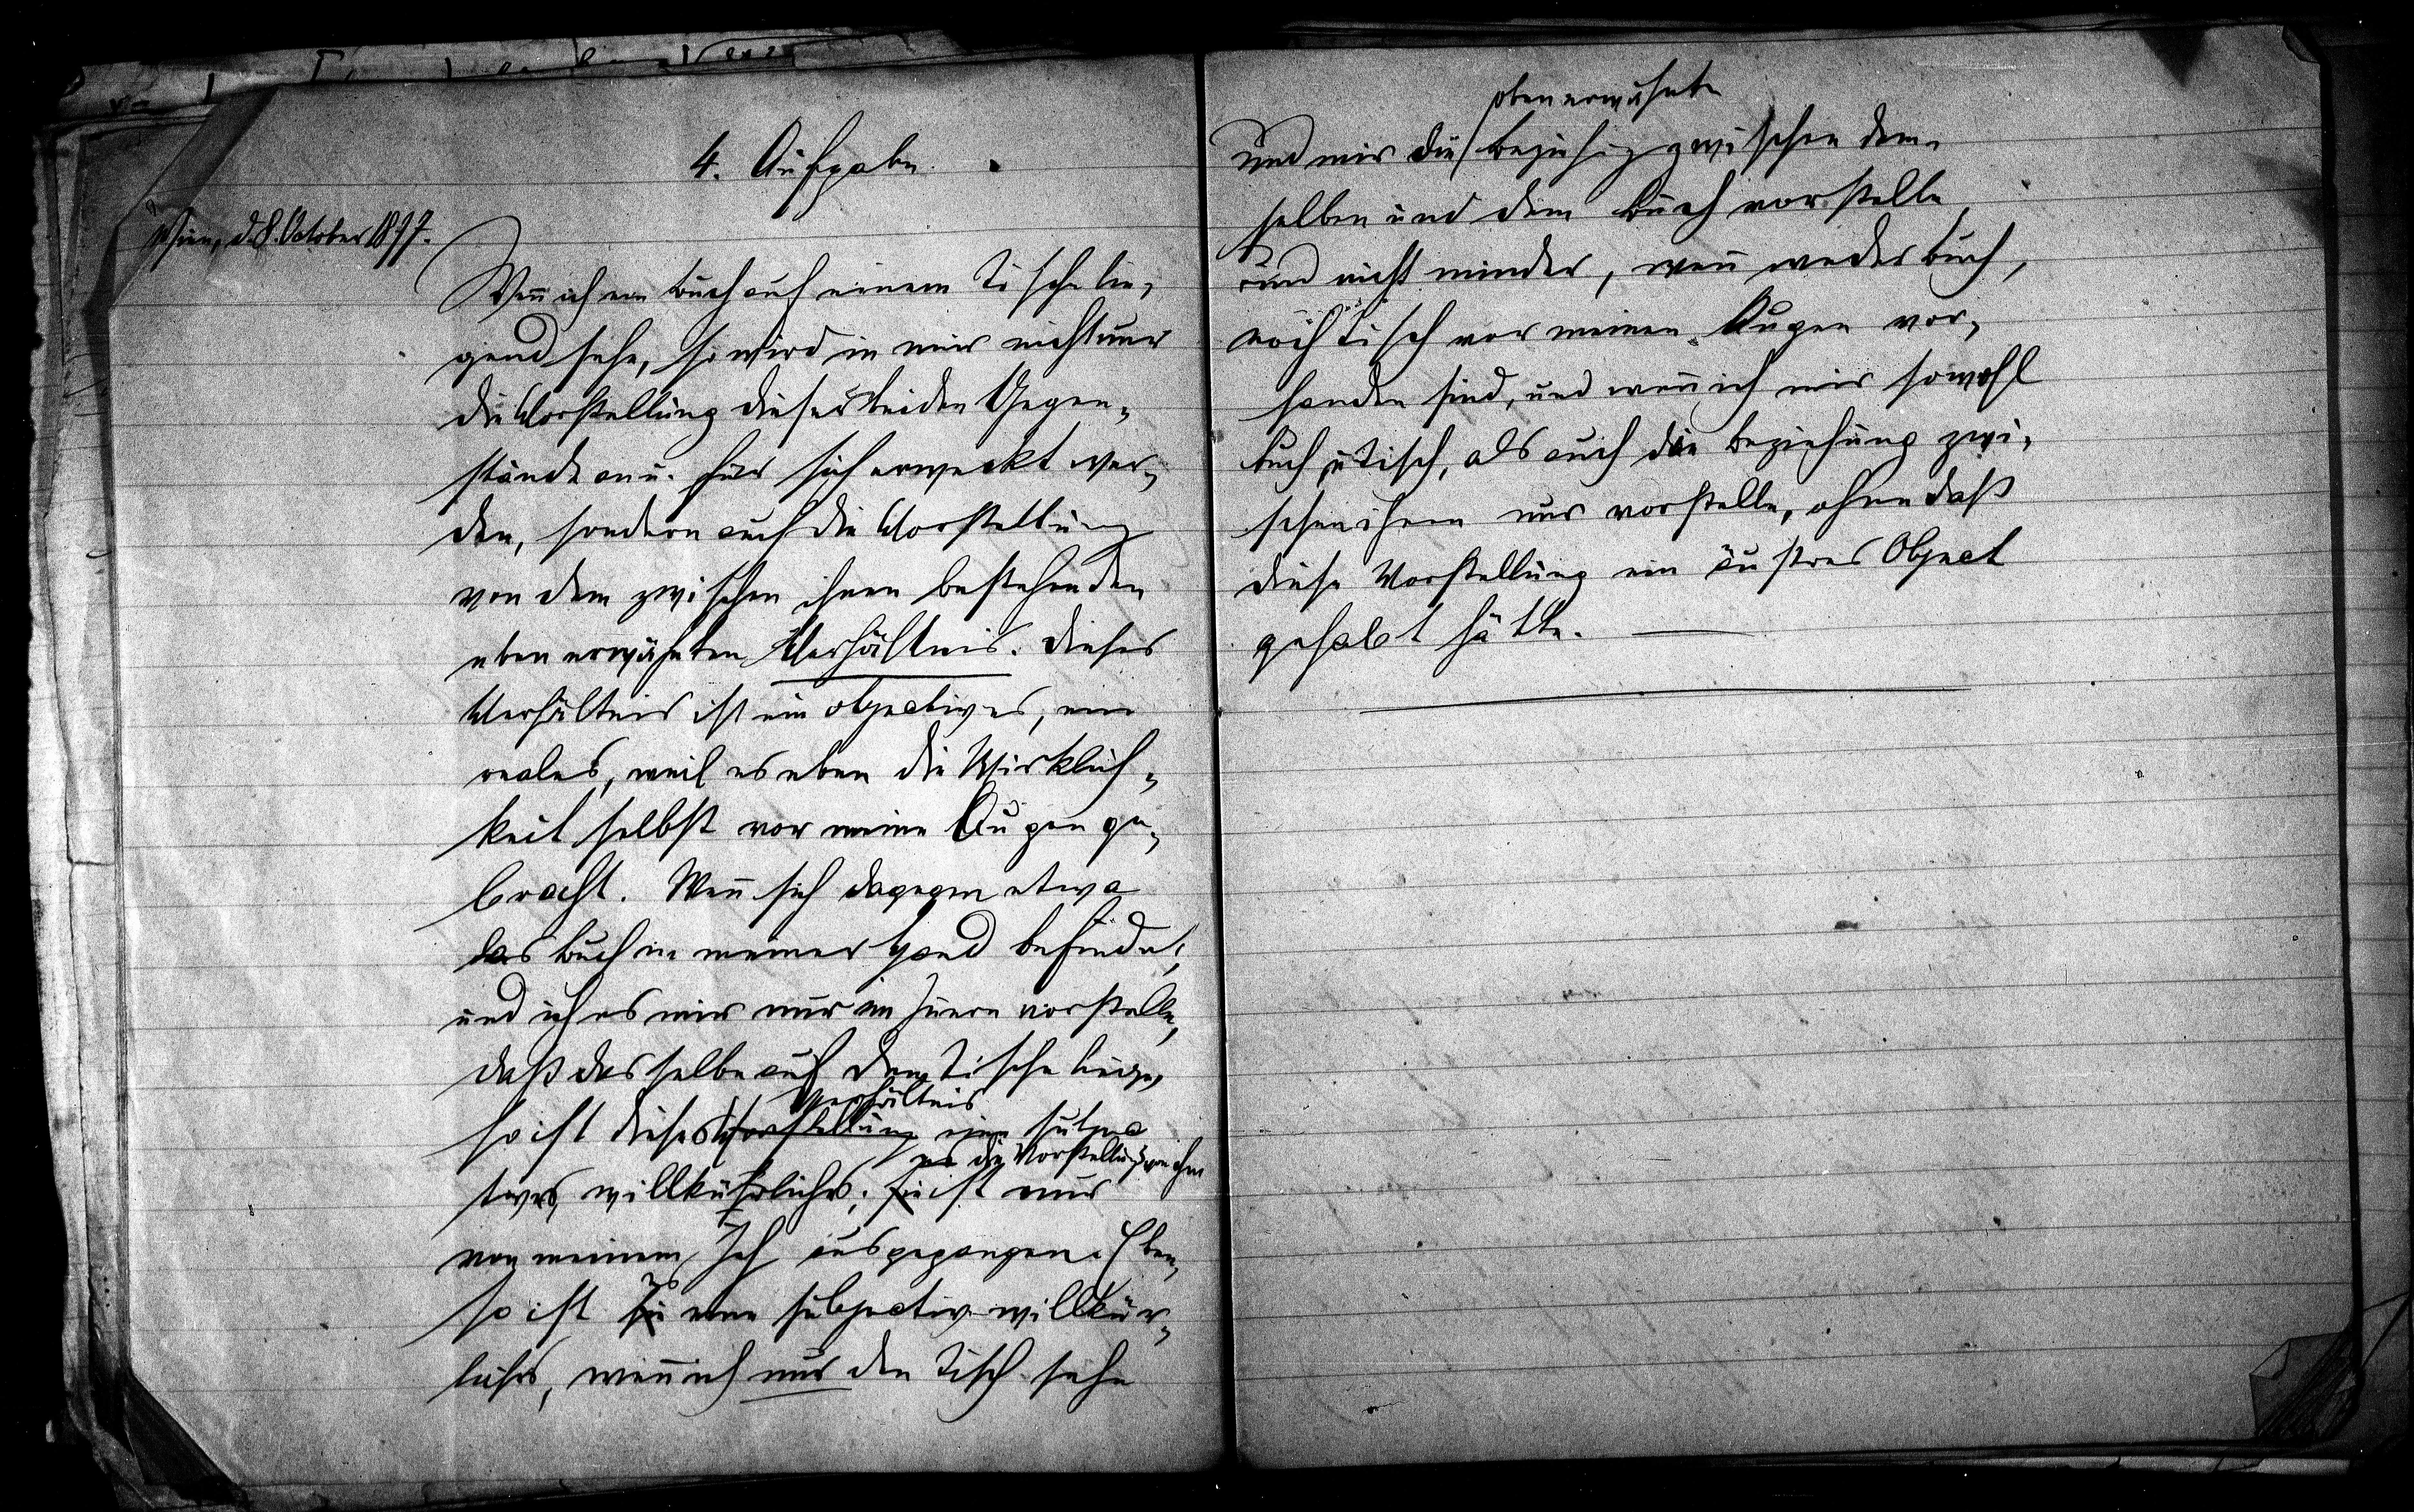 4. Aufgabe.
Wien, d. 8. October 1897.
Wen̄ ich ein Buch auf einem Tische lie-
gend sehe, so wird in mir nicht nur
die Vorstellung dieser beiden Gegen-
stände an u. für sich erweckt wer-
den, sondern auch die Vorstellung
von dem zwischen ihnen bestehenden
eben erwähnten Verhältnis. Dieses
Verhältnis ist ein objectives, ein
reales, weil es eben die Wirklich-
keit selbst vor meine Augen ge-
bracht. Wen̄ sich dagegen etwa
das Buch in meiner Hand befindet,
und ich es mir nur im Innern vorstelle,
daß dasselbe auf dem Tische liege,
Verhältnis
so ist dieses Vorstellung ein subjec-
es die Vorstellung von ihm
tives, willkührliches; sie ist nur
von meinem Ich ausgegangen. Eben-
so ist sie eine subjectiv-willkür-
liches, wen̄ ich nur den Tisch sehe
oben erwähnte
und mir die Beziehung zwischen dem-
selben und dem Buch vorstelle
und nicht minder, wen̄ weder Buch,
noch Tisch vor meinen Augen vor-
handen sind, und wen̄ ich mir sowohl
Buch u. Tisch, als auch die Beziehung zwi-
schen ihnen nur vorstelle, ohne daß
diese Vorstellung ein äußres Object
gehabt hätte. —